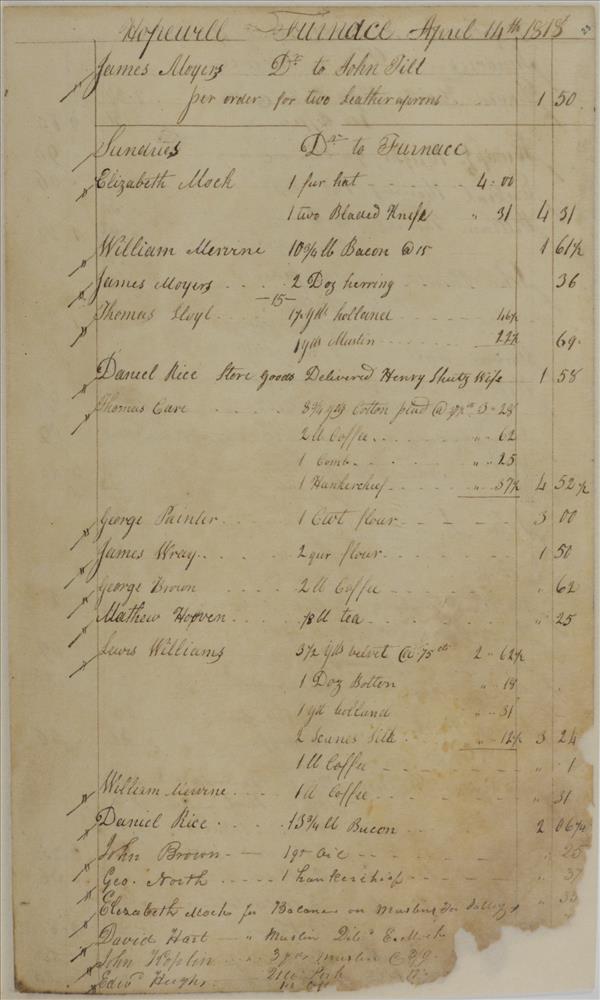 Hopewell Furnace April 14th 1818 23
James Moyers Dr to John Till
per order for two leather aprons 1 50
Sundries Dr to Furnace
Elizabeth Mock 1 fur hat 4 " 00
1 two Bladed Knife " 31 4 31
William Mervine 10 3/4 lb Bacon @ 15 1 61 1/2
James Moyers 2 Doz herring 36
—15—
Thomas Lloyd 1 1/2 yds holland 46 1/2
1 yds Muslin 22 1/2 69
Daniel Rice Store goods Delivered Henry Shutz Wife 1 58
Thomas Care 8 3/4 yds Cotton plad @ 3 " 28
2 lb Coffee " 62
1 Comb " 25
1 Hankerchief " 37 1/2 4 52 1/2
George Painter 1 Cwt flour 3 00
James Wray 2 qur flour 1 50
George Brown 2 lb Coffee " 62
Mathew Hooven 1/8 lb tea " 25
Lewis Williams 3 1/2 yds velvet @ 75 cts 2 " 62 1/2
1 Doz Botton " 18
1 yd holland " 31
2 Scanes Silk " 12 1/2 3 24
1 lb Coffee " 1
William Mervine 1 lb Coffee " 31
Daniel Rice 13 3/4 lb Bacon 2 06 1/4
John Brown 1 qr Oil " 25
Geo. North 1 hankerchief " 37
Elizabeth Mock for Balance on Muslin " 33
David Hart " Muslin E. Mock
John Koplin 3 yds muslin @
Edwd Hughs Pork